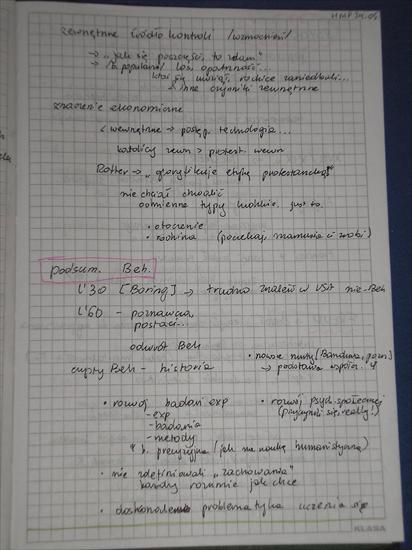 zewnętrzne źródło kontroli /wzmocnień/
→ "jak się poszczęści, to zdam"
popularni losi, opatrzność...
ktoś się uwziął, rodzice zaniedbali...
inne czynniki zewnętrzne
znaczenie ekonomiczne
wewnętrzne → postęp, technologia...
katolicy zewn > protest. wewn
Rotter → "gloryfikuje etykę protestancką"
nie chciał chwalić
odmienne typy kontr. jest to
• otoczenie
• rodzina (poczekaj, mamusia ci zrobi)
podsum. Beh.
L'30 [Boring] → trudno znaleźć w USA nie-Beh
L'60 - poznawcza,
postaci...
odwrót Beh
czysty Beh - historia
• nowe nurty [Bandura, pozn]
→ podstawa współcz. Ψ
• rozwój badań exp
- exp
- badania
- metody
* b. precyzyjne (jak na naukę humanistyczną)
• rozwój psych. społecznej
(przyczynili się, really!)
• nie zdefiniowali "zachowania"
każdy rozumie jak chce
• doskonale problematyka uczenia się
KLASA